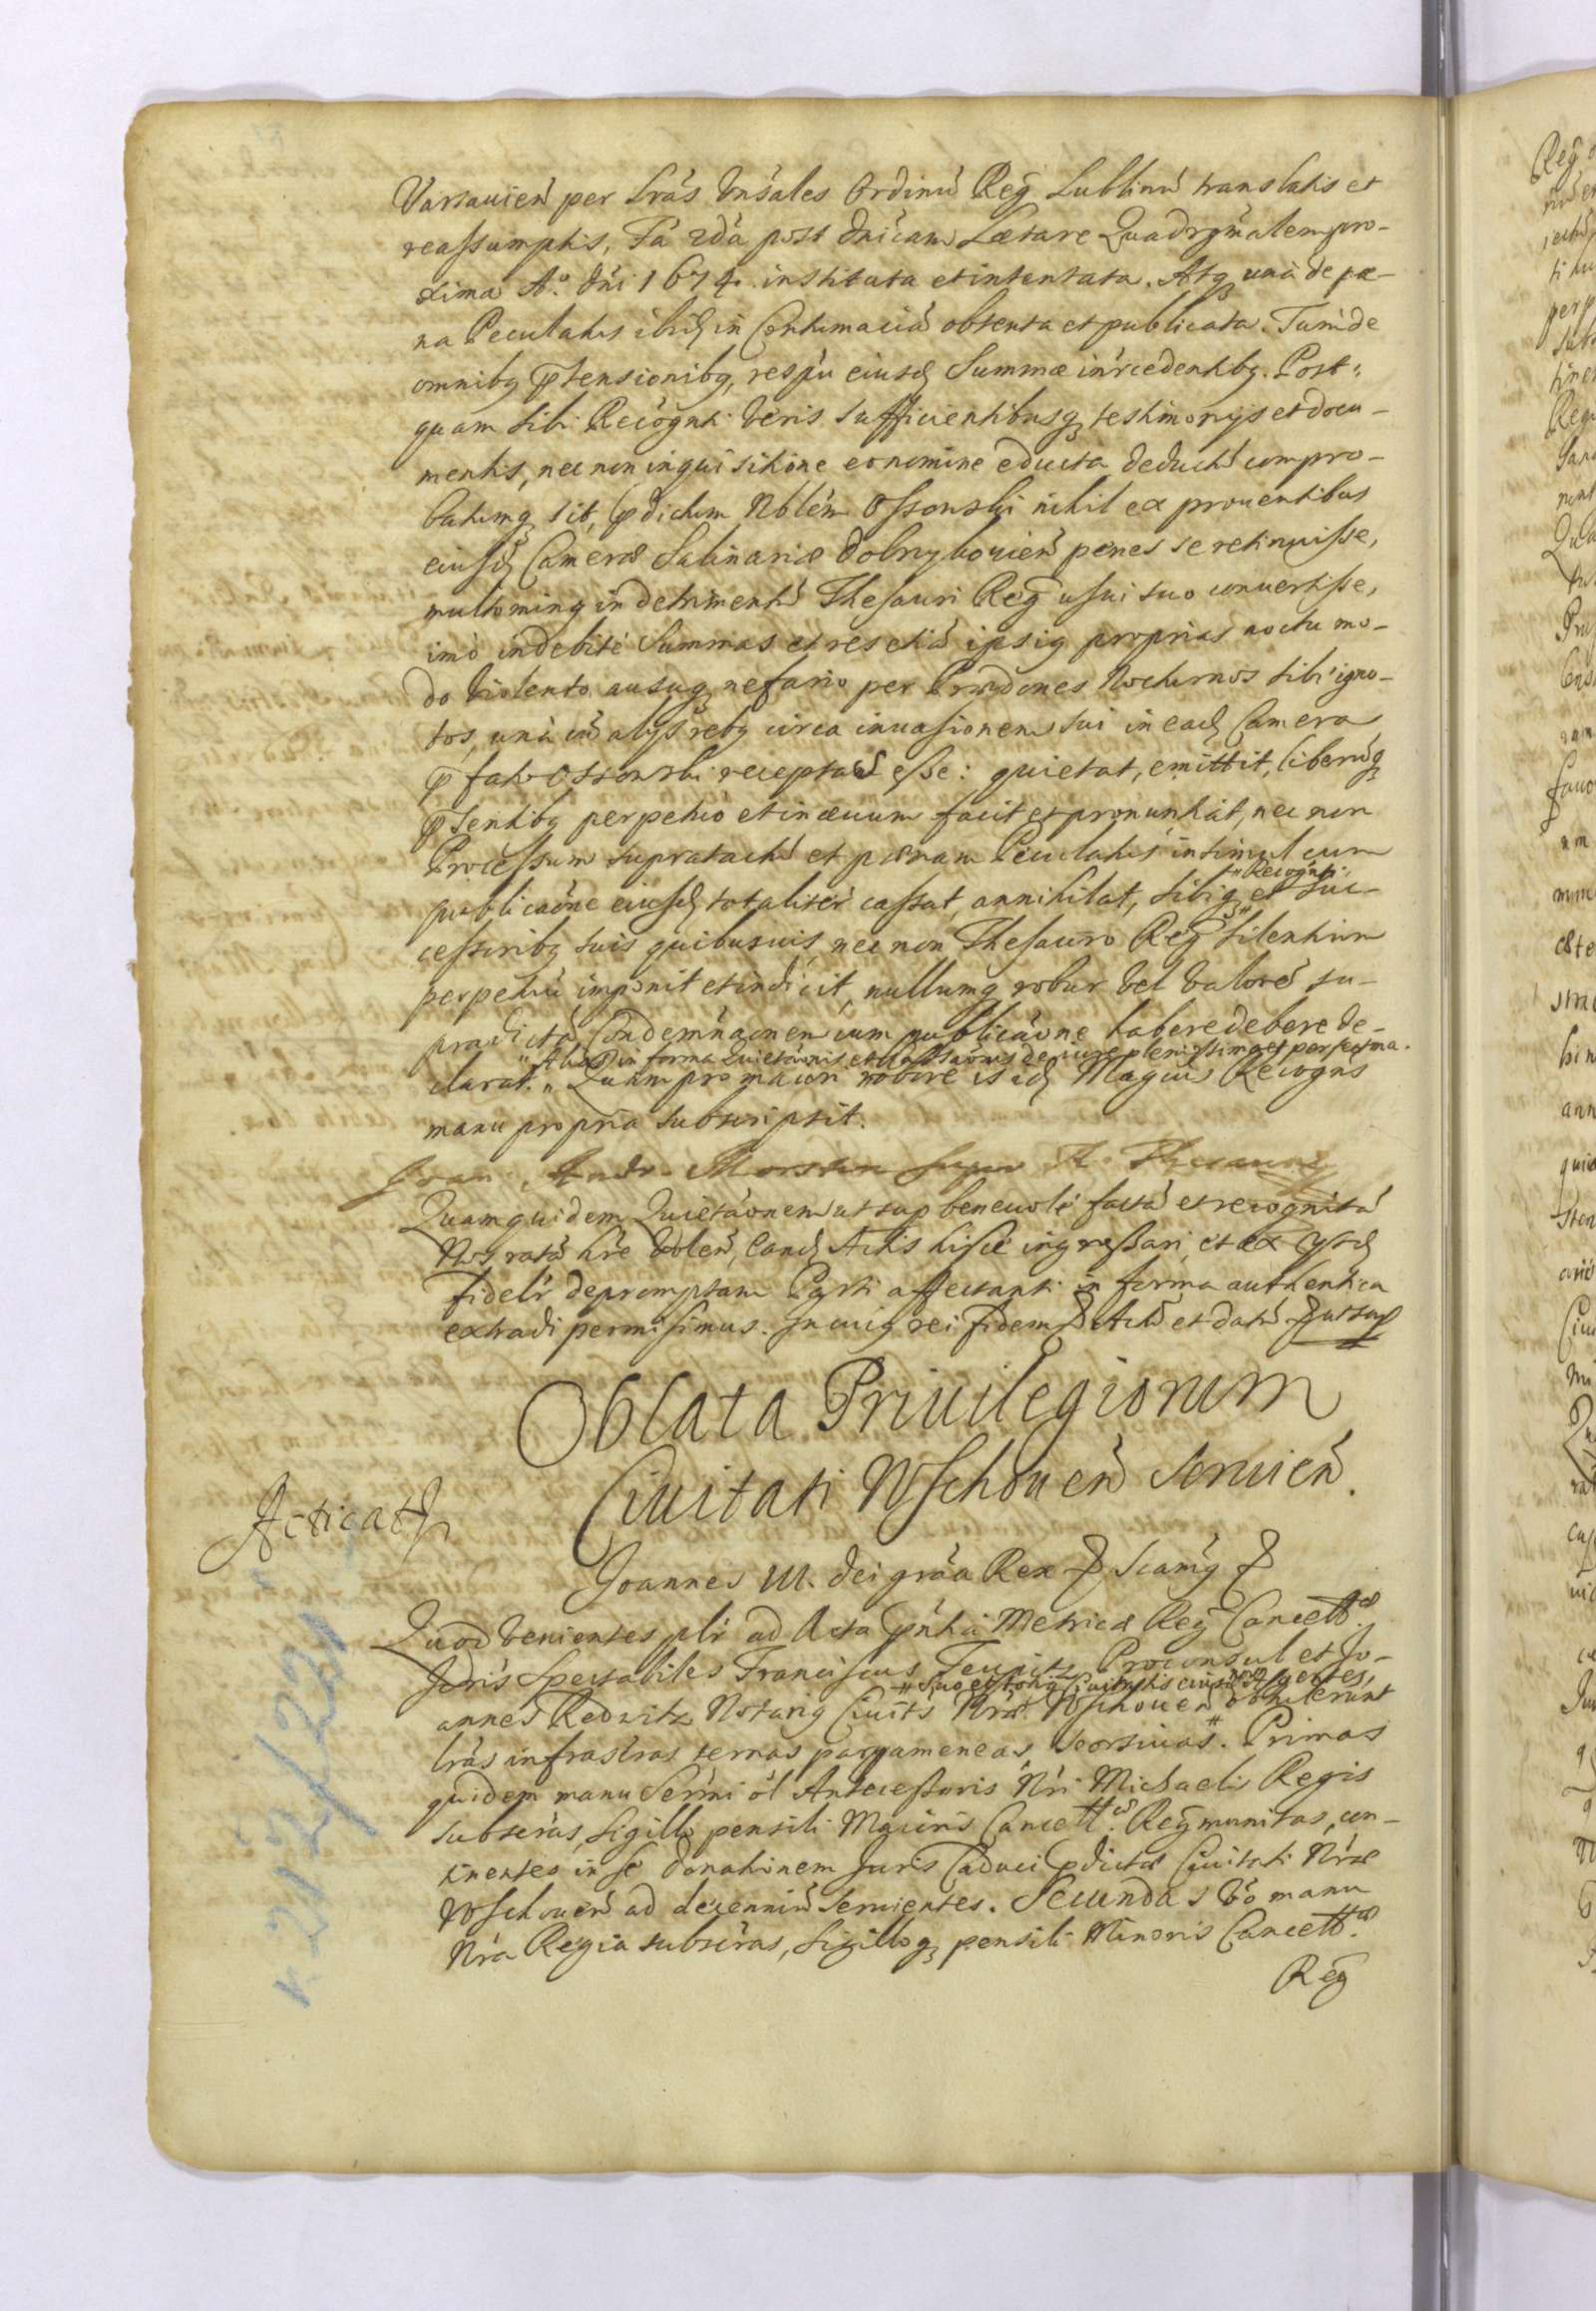 Varsavień per Lrás Vnśales Ordinū Regi Lublinū translatis et
reassumptis, Fá 2dá post dnicam Lætare Quadrgmalem pro-
xima Ao. Dni 1674. instituta et intentata. Atq3 una de pæ-
na Peculatus ibid in Contumaciā obtenta et publicata. Tum de
omnibq ptensionibq, respu eiusd Summæ inrcedentibq. Post-
quam sibi Recognti veris sufficientibusq3 testimonijs et docu-
mentis, nec non inquisitione eo nomine educta deductū compro-
batumq3 sit, pdictum Nblem Ossonski nihil ex prouentibus
eiusd Cameræ Salinariæ Dobrzybouień penes se retinuisse,
multo minq in detrimentū Thesauri Reg usui suo conuertisse,
imò indebitè Summas et res etiā ipsiq proprias noctu mo-
do violento ausuq3 nefario per Prædones Nocturnos sibi igno-
tos, unà cū alijs rebq circa inuasionem sui in ead Camera
pfato Ossonski receptas esse: quietat, emittit, liberūq3
psentibq perpetuò et in æuum facit et pronuntiat, nec non
Processum supratactū et pænam Peculatus insimul cum
publicaóne eiusd totaliter cassat, annihilat, sibiq3 " et Suc-
" Recognti.
cessoribq suis quibusuis, nec non Thesauro Reg silentium
perpetuū imponit et indicit, nullumq3 robur vel valorē su-
pradictā Condemnaónem cum publicaóne habere debere de-
" Aliàs in forma Quietaónis et Cassaónis de iure plenissima et perfectma.
clarat. " Quam pro maiori robore is id Magcus Recogns
manu propria subscripsit.
Joan. Andr. Morstin Supr R. Thesaurq
Quamquidem Quietaónem ut sup beneuolè factā et recognitā
Nos ratā hre volen, eand Actis hisce ingrossari, et ex ijsd
fidelr depromptam Parti affectanti in forma authentica
extradi permisimus. In cuiq rei fidem & Actū et datū & ut sup
Oblata Priuilegiorum
Ciuitati Wschouen Seruien.
Acticat
Joannes III. Dei grãa Rex & Scamq &
Quod venientes plr ad Acta pnta Metricæ Reg Cancellæ
Joannes Redzitz Notariq Ciuits Nræ Wschouen obtulerunt
lrás infrascras ternas pargameneas, seorsiuas. Primas
quidem manu Sermi ol Antecessoris Nri Michaelis Regis
subscras, Sigillo pensili Maioris Cancellæ Reg munitas, con-
tinentes in se donationem Juris Caduci pdictæ Ciuitati Nræ
Wschouen ad decenniū seruientes. Secundas vo manu
Nra Regia subscras, Sigilloq3 pensili Minoris Cancellæ
Reg